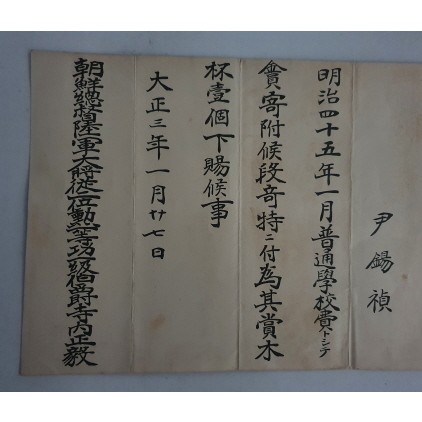 尹錫禎
明治四十五年一月普通學校費トシテ
寄附候段奇特ニ付為其賞木
杯壹個下賜候事
大正三年一月廿七日
朝鮮總督陸軍大將從二位勳一等功一級伯爵寺内正毅